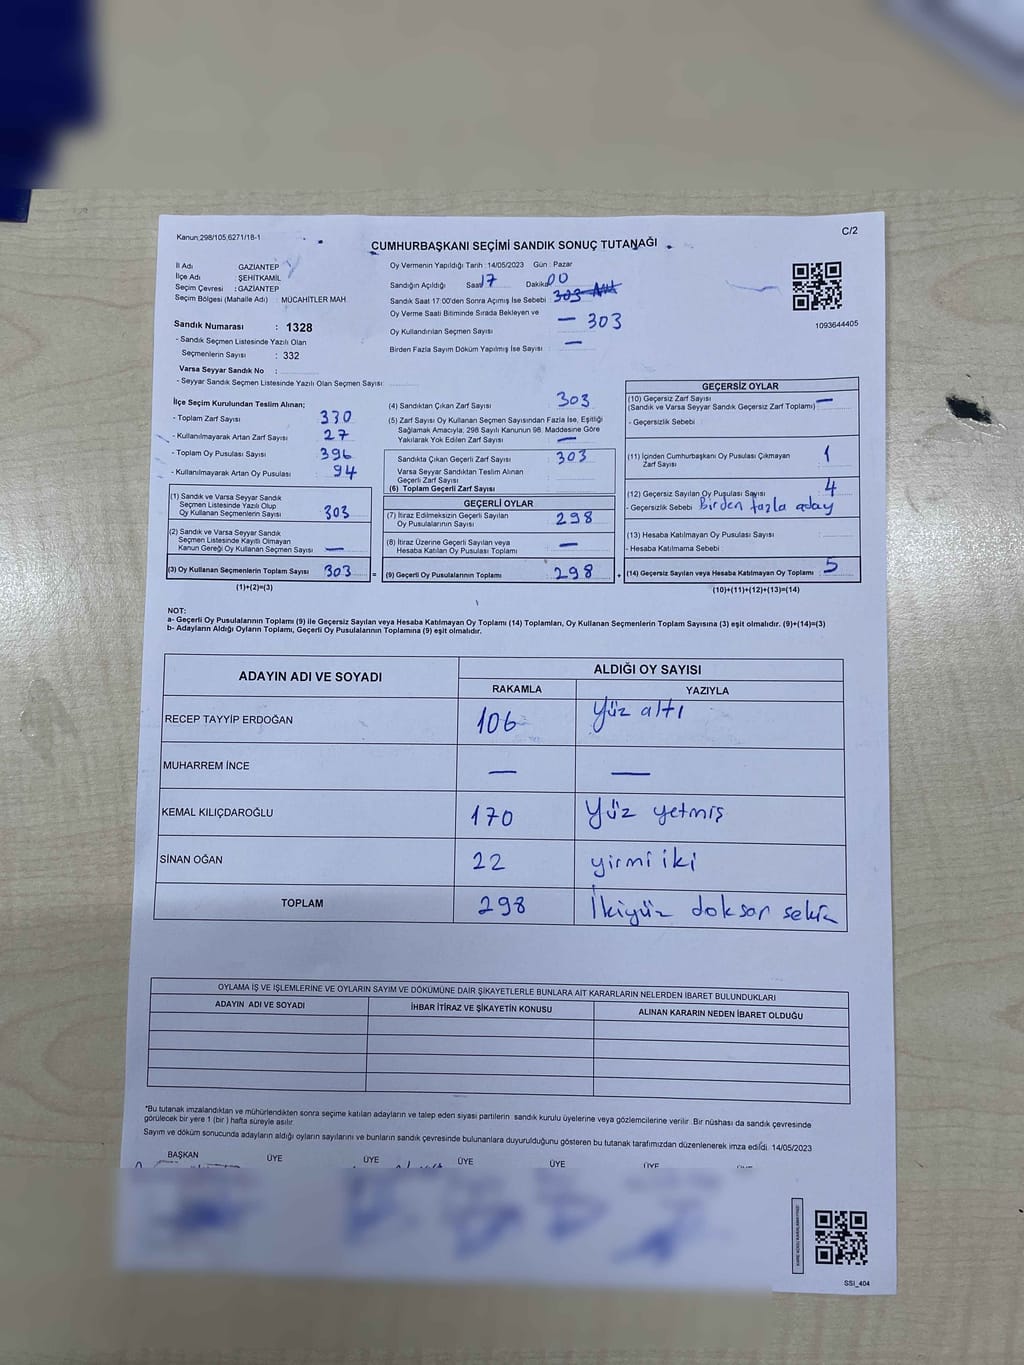 Kanun;298/105,6271/18-1
C/2
CUMHURBAŞKANI SEÇİMİ SANDIK SONUÇ TUTANAĞI
İl Adı GAZİANTEP
İlçe Adı : ŞEHİTKAMİL
Seçim Çevresi : GAZİANTEP
Seçim Bölgesi (Mahalle Adı) : MÜCAHİTLER MAH.
Sandık Numarası : 1328
- Sandık Seçmen Listesinde Yazılı Olan
Seçmenlerin Sayısı : 332
Varsa Seyyar Sandık No :
- Seyyar Sandık Seçmen Listesinde Yazılı Olan Seçmen Sayısı
Oy Vermenin Yapıldığı Tarih : 14/05/2023 Gün : Pazar
Sandığın Açıldığı Saat 17 Dakika 00
Sandık Saat 17:00'den Sonra Açımış İse Sebebi
Oy Verme Saati Bitiminde Sırada Bekleyen ve — 303
Oy Kullandırılan Seçmen Sayısı
Birden Fazla Sayım Döküm Yapılmış İse Sayısı —
1093644405
İlçe Seçim Kurulundan Teslim Alınan;
- Toplam Zarf Sayısı 330
- Kullanılmayarak Artan Zarf Sayısı 27
- Toplam Oy Pusulası Sayısı 396
- Kullanılmayarak Artan Oy Pusulası 94
(1) Sandık ve Varsa Seyyar Sandık
Seçmen Listesinde Yazılı Olup
Oy Kullanan Seçmenlerin Sayısı 303
(2) Sandık ve Varsa Seyyar Sandık
Seçmen Listesinde Kayıtlı Olmayan
Kanun Gereği Oy Kullanan Seçmen Sayısı —
(3) Oy Kullanan Seçmenlerin Toplam Sayısı 303 =
(1)+(2)=(3)
(4) Sandıktan Çıkan Zarf Sayısı 303
(5) Zarf Sayısı Oy Kullanan Seçmen Sayısından Fazla İse, Eşitliği
Sağlamak Amacıyla; 298 Sayılı Kanunun 98. Maddesine Göre
Yakılarak Yok Edilen Zarf Sayısı —
Sandıkta Çıkan Geçerli Zarf Sayısı 303
Varsa Seyyar Sandıktan Teslim Alınan
Geçerli Zarf Sayısı
(6) Toplam Geçerli Zarf Sayısı
GEÇERLİ OYLAR
(7) İtiraz Edilmeksizin Geçerli Sayılan
Oy Pusulalarının Sayısı 298
(8) İtiraz Üzerine Geçerli Sayılan veya
Hesaba Katılan Oy Pusulası Toplamı —
(9) Geçerli Oy Pusulalarının Toplamı 298 +
GEÇERSİZ OYLAR
(10) Geçersiz Zarf Sayısı —
(Sandık ve Varsa Seyyar Sandık Geçersiz Zarf Toplamı)
- Geçersizlik Sebebi :
(11) İçinden Cumhurbaşkanı Oy Pusulası Çıkmayan
Zarf Sayısı 1
(12) Geçersiz Sayılan Oy Pusulası Sayısı 4
- Geçersizlik Sebebi Birden fazla aday
(13) Hesaba Katılmayan Oy Pusulası Sayısı
- Hesaba Katılmama Sebebi :
(14) Geçersiz Sayılan veya Hesaba Katılmayan Oy Toplamı 5
(10)+(11)+(12)+(13)=(14)
NOT:
a- Geçerli Oy Pusulalarının Toplamı (9) ile Geçersiz Sayılan veya Hesaba Katılmayan Oy Toplamı (14) Toplamları, Oy Kullanan Seçmenlerin Toplam Sayısına (3) eşit olmalıdır. (9)+(14)=(3)
b- Adayların Aldığı Oyların Toplamı, Geçerli Oy Pusulalarının Toplamına (9) eşit olmalıdır.
ADAYIN ADI VE SOYADI ALDIĞI OY SAYISI
RAKAMLA YAZIYLA
RECEP TAYYİP ERDOĞAN 106 Yüz altı
MUHARREM İNCE — —
KEMAL KILIÇDAROĞLU 170 Yüz yetmiş
SİNAN OĞAN 22 yirmi iki
TOPLAM 298 İkiyüz doksan sekiz
OYLAMA İŞ VE İŞLEMLERİNE VE OYLARIN SAYIM VE DÖKÜMÜNE DAİR ŞİKAYETLERLE BUNLARA AİT KARARLARIN NELERDEN İBARET BULUNDUKLARI
ADAYIN ADI VE SOYADI İHBAR İTİRAZ VE ŞİKAYETİN KONUSU ALINAN KARARIN NEDEN İBARET OLDUĞU
*Bu tutanak imzalandıktan ve mühürlendikten sonra seçime katılan adayların ve talep eden siyasi partilerin sandık kurulu üyelerine veya gözlemcilerine verilir. Bir nüshası da sandık çevresinde
görülecek bir yere 1 (bir) hafta süreyle asılır.
Sayım ve döküm sonucunda adayların aldığı oyların sayılarını ve bunların sandık çevresinde bulunanlara duyurulduğunu gösteren bu tutanak tarafımızdan düzenlenerek imza edildi. 14/05/2023
BAŞKAN ÜYE ÜYE ÜYE ÜYE ÜYE ÜYE
SSI_404